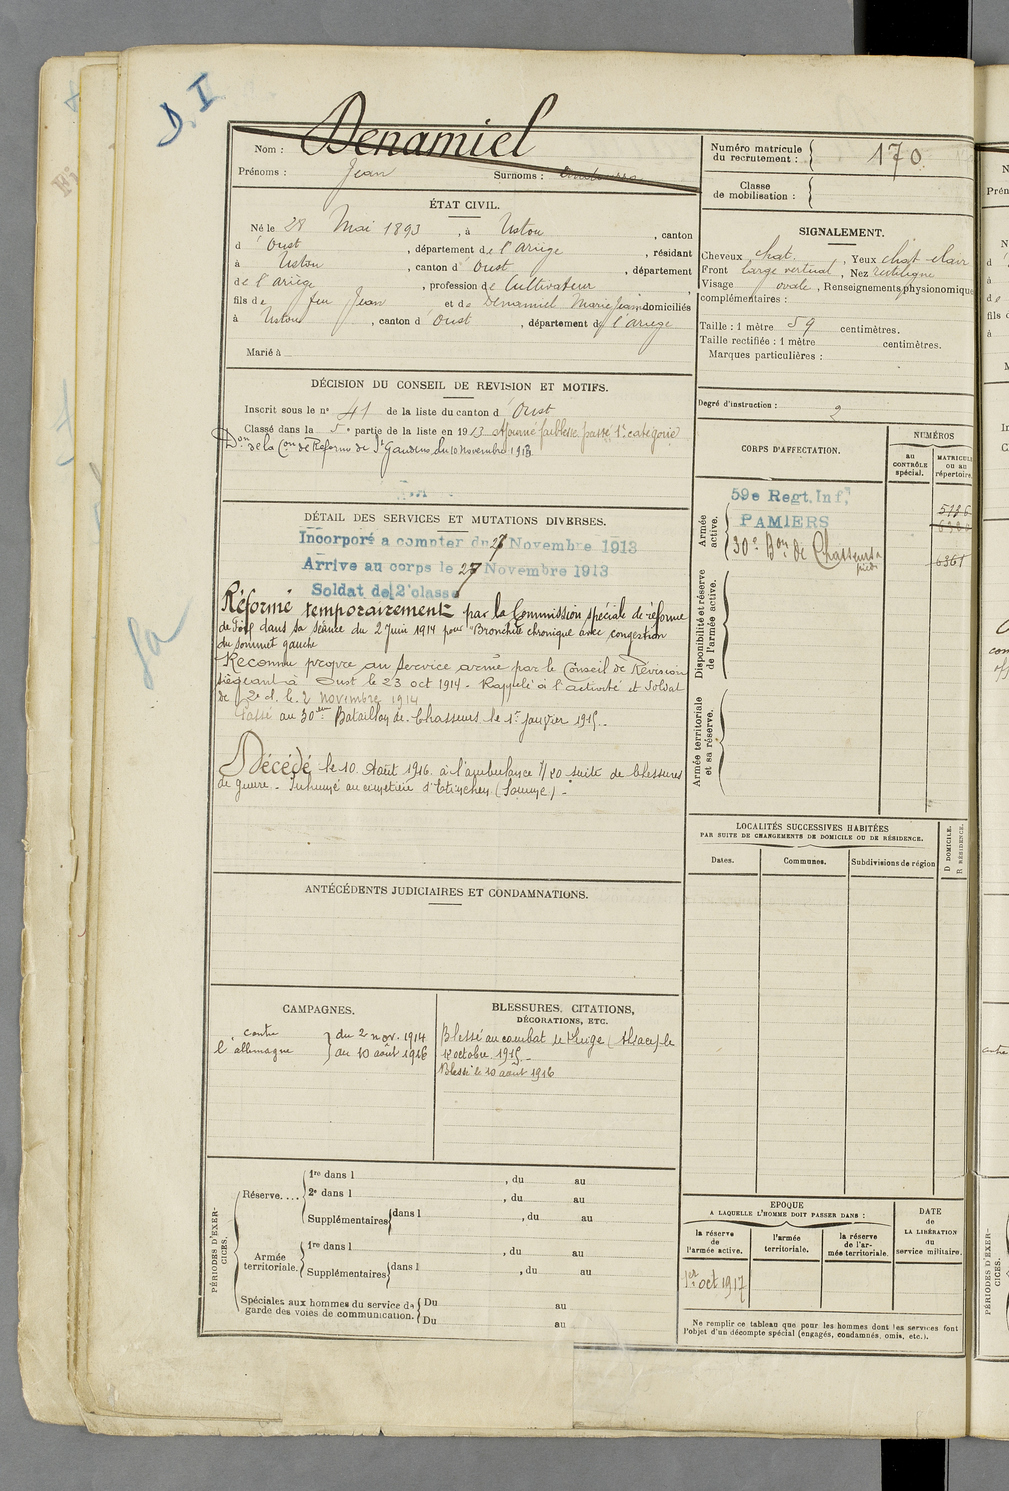 D. I
Nom : Denamiel
Prénoms : Jean Surnoms :
Numéro matricule
du recrutement : 170
Classe
de mobilisation :
ÉTAT CIVIL.
Né le 28 Mai 1893, à Ustou, canton
d'Oust, département de l'Ariège, résidant
à Ustou, canton d'Oust, département
de l'ariège, profession de Cultivateur
fils de feu Jean et de Denamiel Marie Jeanne domiciliés
à Ustou, canton d'Oust, département de l'ariège
Marié à
SIGNALEMENT.
Cheveux chat., Yeux chat clair
Front large vertical, Nez rectiligne
Visage ovale, Renseignements physionomiques
complémentaires :
Taille : 1 mètre 59 centimètres.
Taille rectifiée : 1 mètre centimètres.
Marques particulières :
Degré d'instruction : 2
DÉCISION DU CONSEIL DE REVISION ET MOTIFS.
Inscrit sous le n° 41 de la liste du canton d'Oust
Classé dans la 5e partie de la liste en 1913 Ajourné faiblesse passé 1re catégorie
Don de la Con de Réforme de St Gaudens du 10 novembre 1913
DÉTAIL DES SERVICES ET MUTATIONS DIVERSES.
Incorporé a compter du 27 Novembre 1913
Arrive au corps le 27 Novembre 1913
Soldat de 2e classe
Réformé temporairement par la Commission spéciale de réforme
de Foix dans sa séance du 2 Juin 1914 pour "Bronchite chronique avec congestion
du sommet gauche
Reconnu propre au service armé par le Conseil de Révision
siégeant à Oust le 23 oct 1914. Rappelé à l'activité et Soldat
de 2e cl. le 2 novembre 1914
Passé au 30em Bataillon de Chasseurs le 1er janvier 1915.
Décédé le 10 Août 1916 à l'ambulance 1/20 suite de blessures
de guerre. Inhumé au cimetière d'Etinehem (Somme).
CORPS D'AFFECTATION.
NUMÉROS
au
CONTRÔLE
spécial.
MATRICULE
ou au
répertoire.
Armée
active.
59e Regt. Inf.
PAMIERS
30e Bon de Chasseurs à
pied
6361
Disponibilité et réserve
de l'armée active.
Armée territoriale
et sa réserve.
LOCALITÉS SUCCESSIVES HABITÉES
PAR SUITE DE CHANGEMENTS DE DOMICILE OU DE RÉSIDENCE.
D DOMICILE.
R RÉSIDENCE.
Dates. Communes. Subdivisions de région
ANTÉCÉDENTS JUDICIAIRES ET CONDAMNATIONS.
CAMPAGNES.
contre
l'allemagne
du 2 nov. 1914
au 10 août 1916
BLESSURES, CITATIONS,
DÉCORATIONS, ETC.
Blessé au combat du Linge (Alsace) le
octobre 1915.
Blessé le 10 août 1916
PÉRIODES D'EXERCICES.
Réserve....
1re dans l , du au
2e dans l , du au
Supplémentaires dans l , du au
Armée
territoriale.
1re dans l , du au
Supplémentaires dans l , du au
Spéciales aux hommes du service de
garde des voies de communication.
Du au
Du au
EPOQUE
A LAQUELLE L'HOMME DOIT PASSER DANS :
la réserve
de
l'armée active.
l'armée
territoriale.
la réserve
de l'ar-
mée territoriale.
DATE
de
LA LIBÉRATION
du
service militaire.
1er oct 1917
Ne remplir ce tableau que pour les hommes dont les services font
l'objet d'un décompte spécial (engagés, condamnés, omis, etc.).